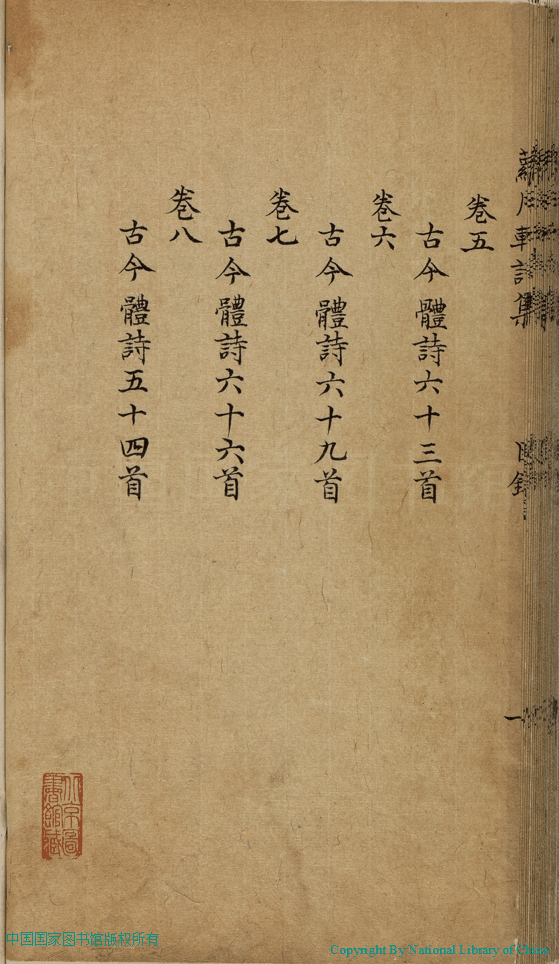 詩集
目錄
一
卷五
古今體詩六十三首
卷六
古今體詩六十九首
卷七
古今體詩六十六首
卷八
古今體詩五十四首
北京圖書館藏
中国国家图书馆版权所有
Copyright By National Library of China